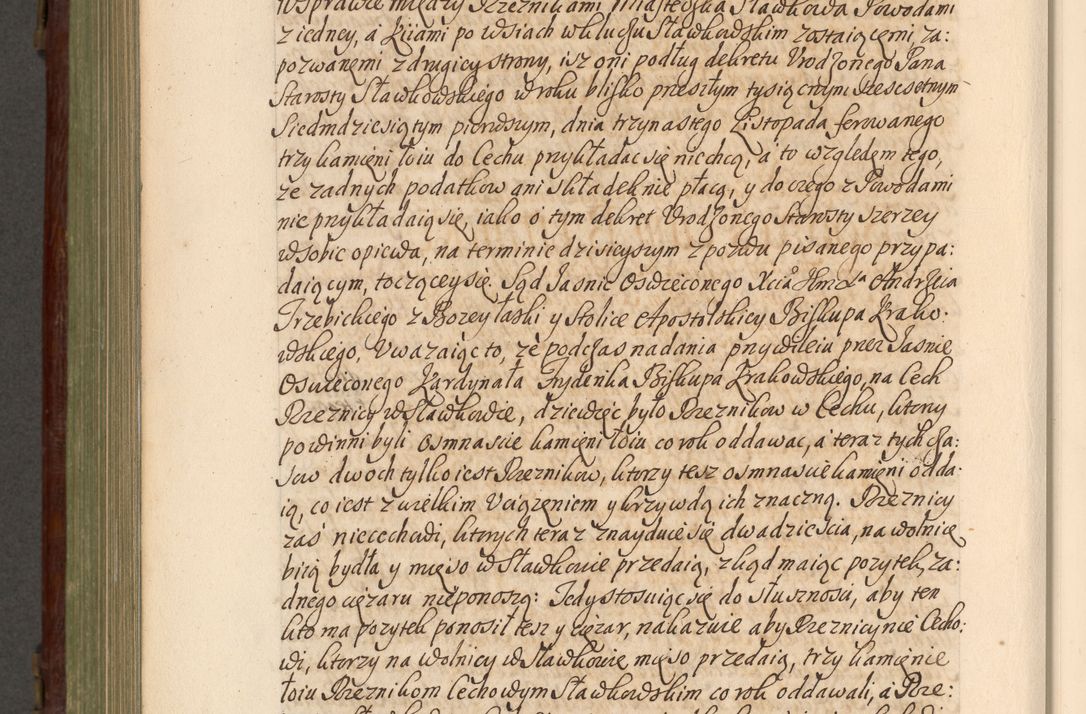 W sprawie między Rzeznikami Miasteczka Sławkowa Powodami
z iedney, a Kiiami po wsiach w kluczu Sławkowskim zostaiącemi, za:
pozwanemi z drugiey strony, isz oni podług dekretu Urodzonego Pana
Starosty Sławkowskiego w roku blisko przeszłym tysiącznym szescsetnym
Siedmdziesiątym pierwszym, dnia trzynastego Listopada ferowanego
trzy kamieni łoiu do Cechu przykładac się niechcą, a to względem tego,
ze zadnych podatkow ani składek nie płacą, y do czego z Powodami
nie przykładaią się, iako o tym dekret Urodzonego Starosty szerzey
w sobie opiewa, na terminie dzisieyszym z pozwu pisanego przypa:
daiącym, toczącey się. Sąd Jasnie Oswieconego Xcia Jmci Andrzeia
Trzebickiego z Bozey łaski y Stolice Apostolskiey Biskupa Krako:
wskiego, Uwazaiąc to, ze podczas nadania przywileiu przez Jasnie
Oswieconego Kardynała Fryderika Biskupa Krakowskiego, na Cech
Rzeznicy w Sławkowie, dziewięc było Rzeznikow w Cechu, ktory
powinni byli osmnascie kamieni łoiu co rok oddawac, a teraz tych cza:
sow dwoch tylko iest Rzeznikow, ktorzy tesz osmnascie kamieni odda:
ią, co iest z wielkim Uciązeniem y krzywdą ich znaczną. Rzeznicy
zas niecechowi, ktorych teraz znayduie się dwadziescia, na wolnicę
biią bydła y mięso w Sławkowie przedaią, zkąd maiąc pozytek, za:
dnego cięzaru nieponoszą: Tedy stosuiąc się do słusznosci, aby ten
kto ma pozytek ponosił tesz y cięzar, nakazuie aby Rzeznicy nie Cecho:
wi, ktorzy na wolnicy w Sławkowie mięso przedaią, trzy kamienie
łoiu Rzeznikom Cechowym Sławkowskim co rok oddawali, a Rze: